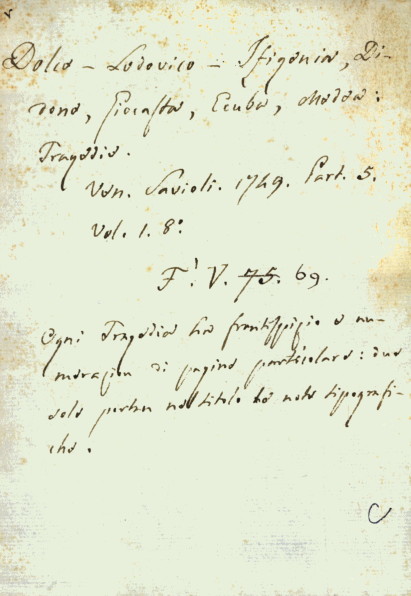 Dolce - Lodovico - Ifigenia, Di-
done, Giocasta, Ecuba, Medea:
Tragedie.
Ven. Savioli. 1749. Part. 5.
Vol. 1. 8.°
F! V. 75. 69.
Ogni Tragedia ha frontispizio e nu-
merazion di pagine particolare: due
sole portan nel titolo le note tipografi-
che.